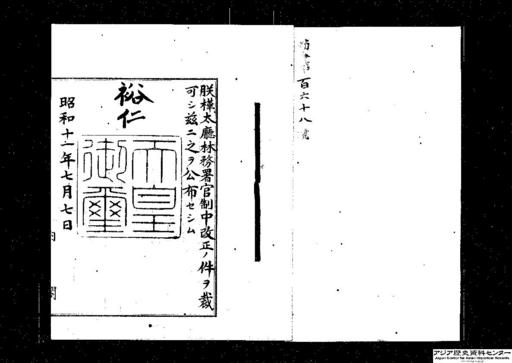 勅令第百六十八號
朕樺太廳林務署官制中改正ノ件ヲ裁
可シ玆ニ之ヲ公布セシム
裕仁
天皇
御璽
昭和十二年七月七日
内閣
アジア歴史資料センター
Japan Center for Asian Historical Records